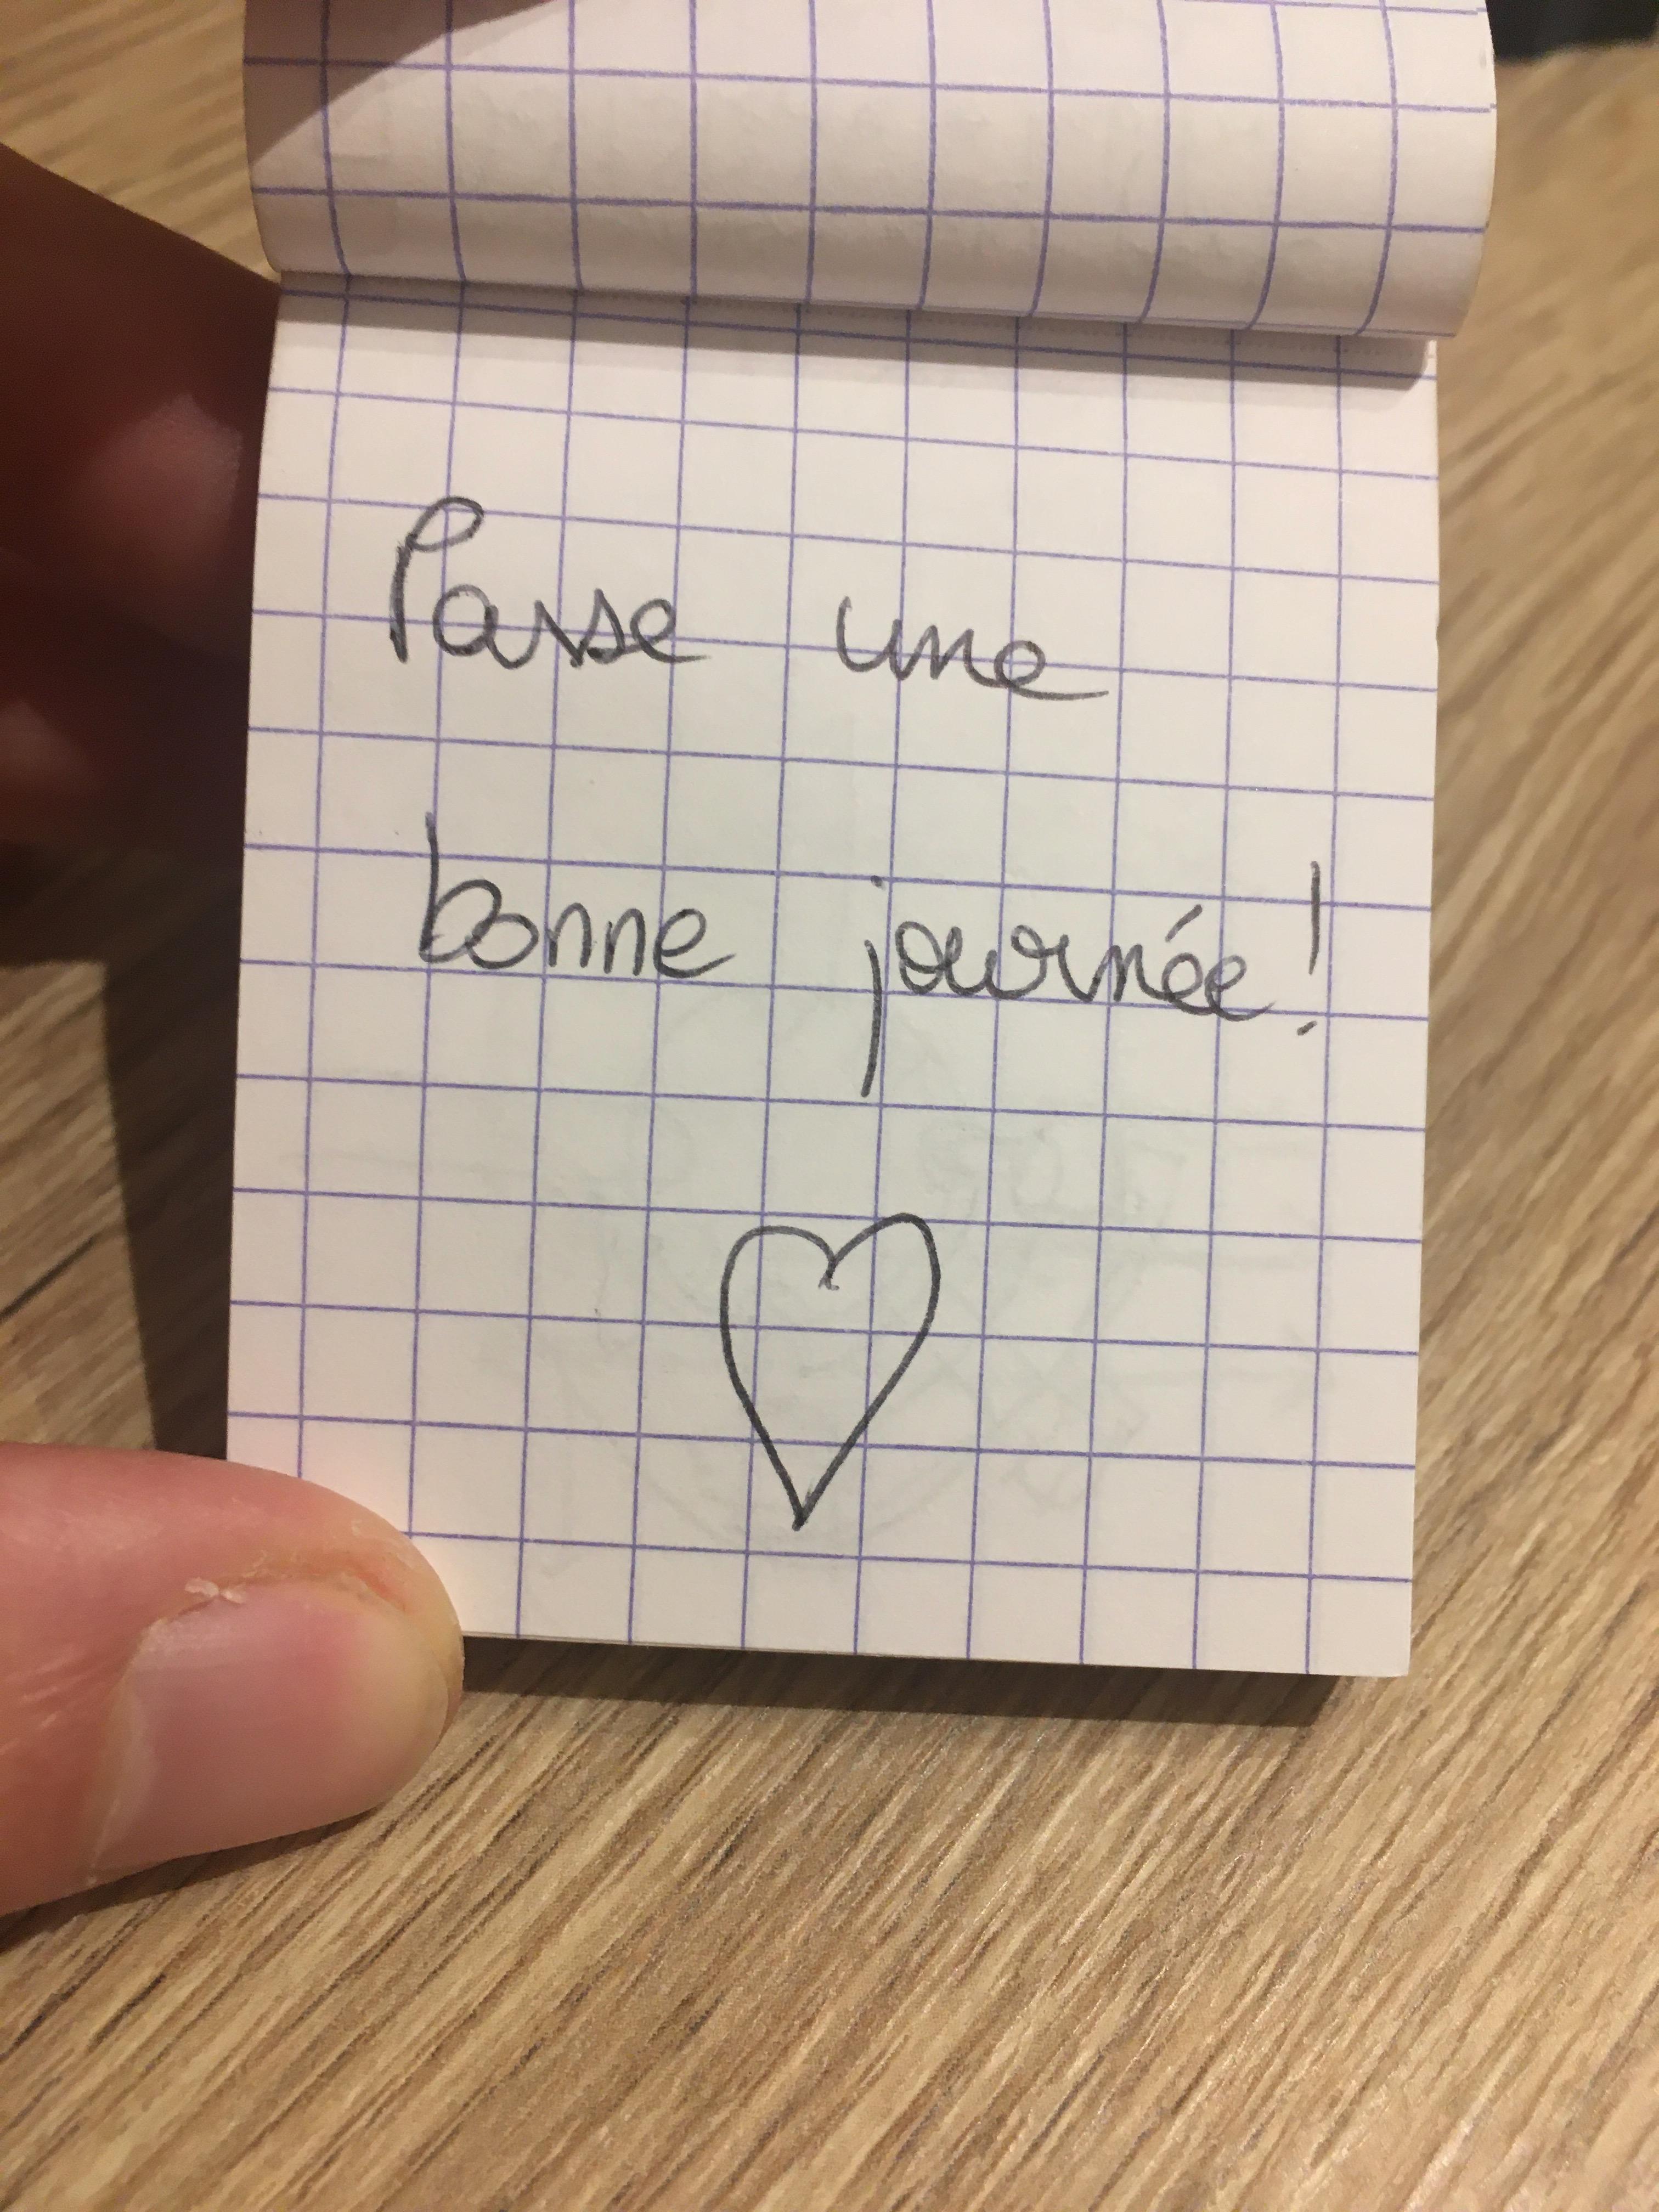 Passe une
bonne journée!